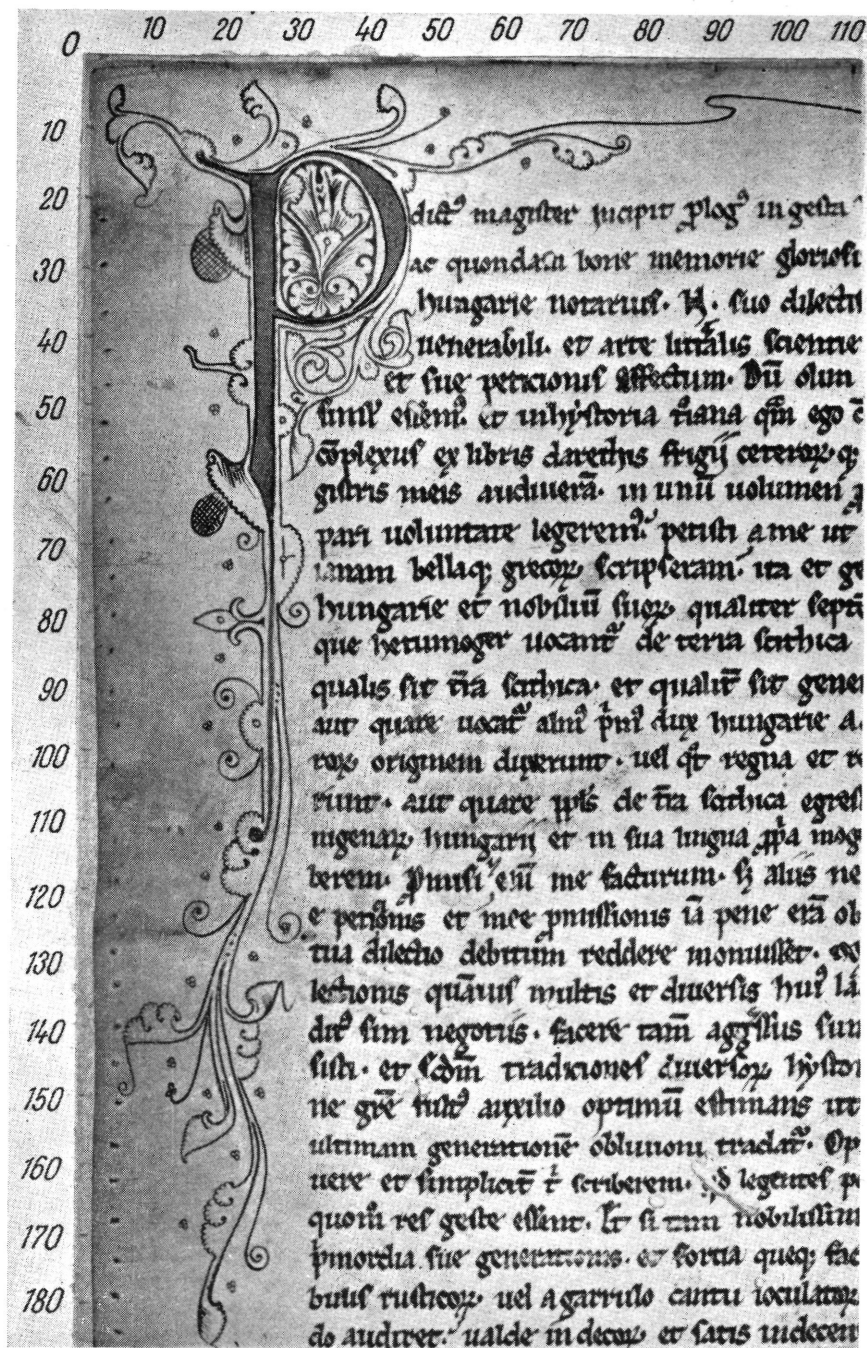 0 10 20 30 40 50 60 70 80 90 100 110
10
20
30
40
50
60
70
80
90
100
110
120
130
140
150
160
170
180
P dict᷒ magister incipit ꝓlog᷒ in gesta
ac quondam bone memorie gloriosi
hungarie notarius. N. suo dilecti
uenerabili. et arte litt̄alis scientie
et sue peticionis effectum. Dū olim
simł essem᷒. et in hẏstoria t̄iana qm̄ ego
cōplexus ex libris darethis frigii ceteroꝝ. q;
gistris meis audiuerā. in unū uolumen
pari uoluntate legerem᷒. petisti a me ut
ianam bellaq; grecoꝝ scripseram. ita et ge
hungarie et nobiliū suoꝝ. qualiter sept
que hetumoger uocant᷑ de terra scithica
qualis sit t̄ra scithica. et qualit̄ sit gene
aut quare uocat᷑ alm᷒ p̄m᷒ dux hungarie a
roꝝ originem duxerunt. uel q̄t regna et re
runt. aut quare ppl̄s de t̄ra scithica egres
nigenaꝝ hungarii et in sua lingua ꝓp̄a mog
berem. Ꝓmisi eni̅ me facturum. sꝫ aliis ne
e peticōnis et mee ꝓmissionis iā pene erā ob
tua dilectio debitum reddere monuisset.
lectionis quāuis multis et diuersis hui᷒ la
dit᷒ sim negotiis. facere tam̄ aggressus sum
sisti. et scd̄m tradiciones diuersoꝝ hẏstor
ne grē fult᷒ auxilio optimū estimans ut
ultimam generationē obliuioni tradat᷑. Op
uere et simplicit̄ t̄ scriberem. qd legentes p
quom̄ res geste essent. Et si tam nobilissim
p̄mordia sue generationis. et fortia queq; fac
bulis rusticoꝝ. uel a garrulo cantu ioculatoꝝ
do audiret. ualde indecoꝝ et satis indecen